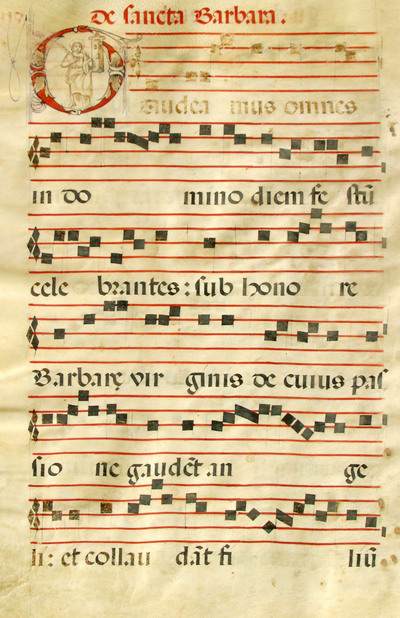 De sancta Barbara.
Gaudea mus omnes
in do mino diem fe stū
cele brantes: sub hono re
Barbarę vir ginis de cuius pas
sio ne gaudēt an ge
li: et collau dāt fi liū